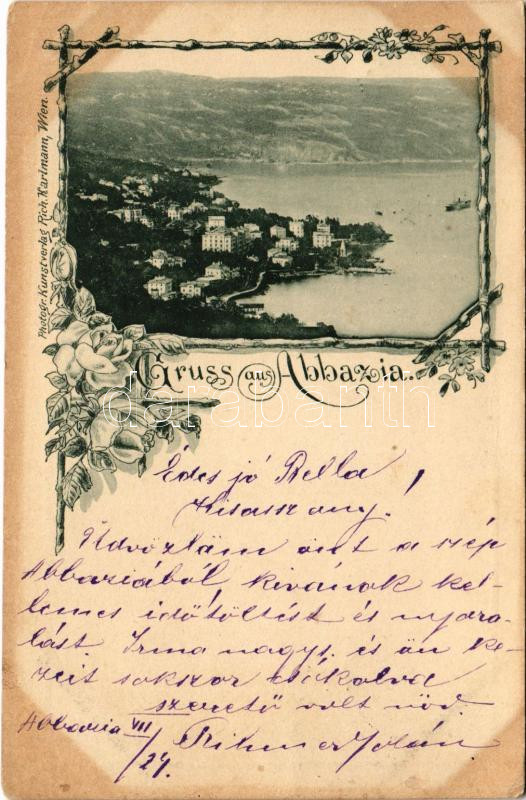 Photogr. Kunstverlag Rich. Hartmann, Wien.
Gruss aus Abbazia.
darabanth
Édes jó Bella
Kisasszony!
Üdvözlöm önt a szép
Abbaziából kivánok kel-
lemes időtöltést és nyara-
lást. Irma nagys. és ön ke-
zeit sokszor csókolva
szerető volt növ.
Abbazia VII/24.